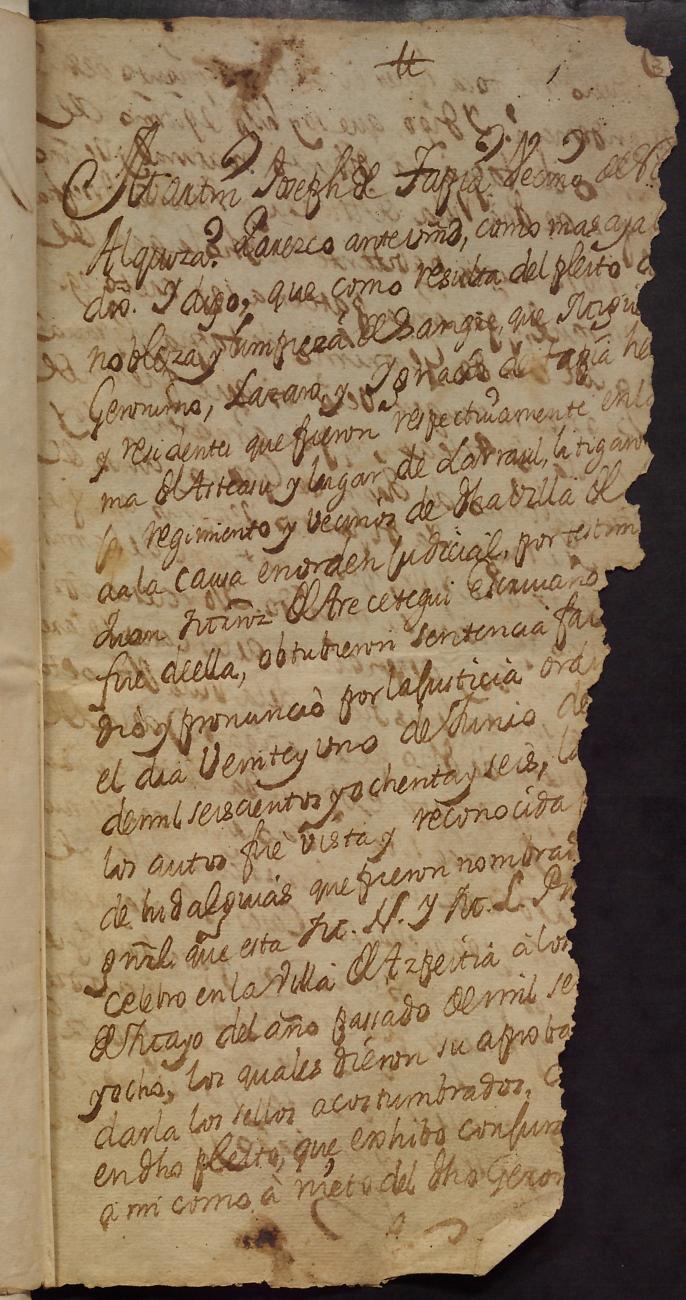 Martin Joseph de Tappia Vecino de
Alquiza. Parezco ante vmd, como mas aya
dro. Y digo, que como resulta del pleito
nobleza y limpieza de Sangre, que
Geronimo, Lazaro, y Ignacio de tapia he
y residentes que fueron respectivamente en l
ma de Asteasu y lugar de Larraul, litigaron
regimiento y vecinos de dha villa de
a la causa en orden judicial, por testim
Juan de Arecetegui Escrivano
fue de ella, obtubieron sentencia fa
dio y pronunciò por la Justicia ord
el dia Veinte y uno de Junio de
de mil seiscientos y ochenta y seis, la
los autos fuè vista y reconocida
de hidalguias que fueron nombrad
gñrl. que esta M. N. y M. L. Pr
celebro en la villa de Azpeitia à los
de Mayo del año passado de mil se
y ocho, los quales dieron su aproba
darla los sellos acostumbrados, c
en dho pleito, que exhibo con jura
a mi como à nieto del dho Geron